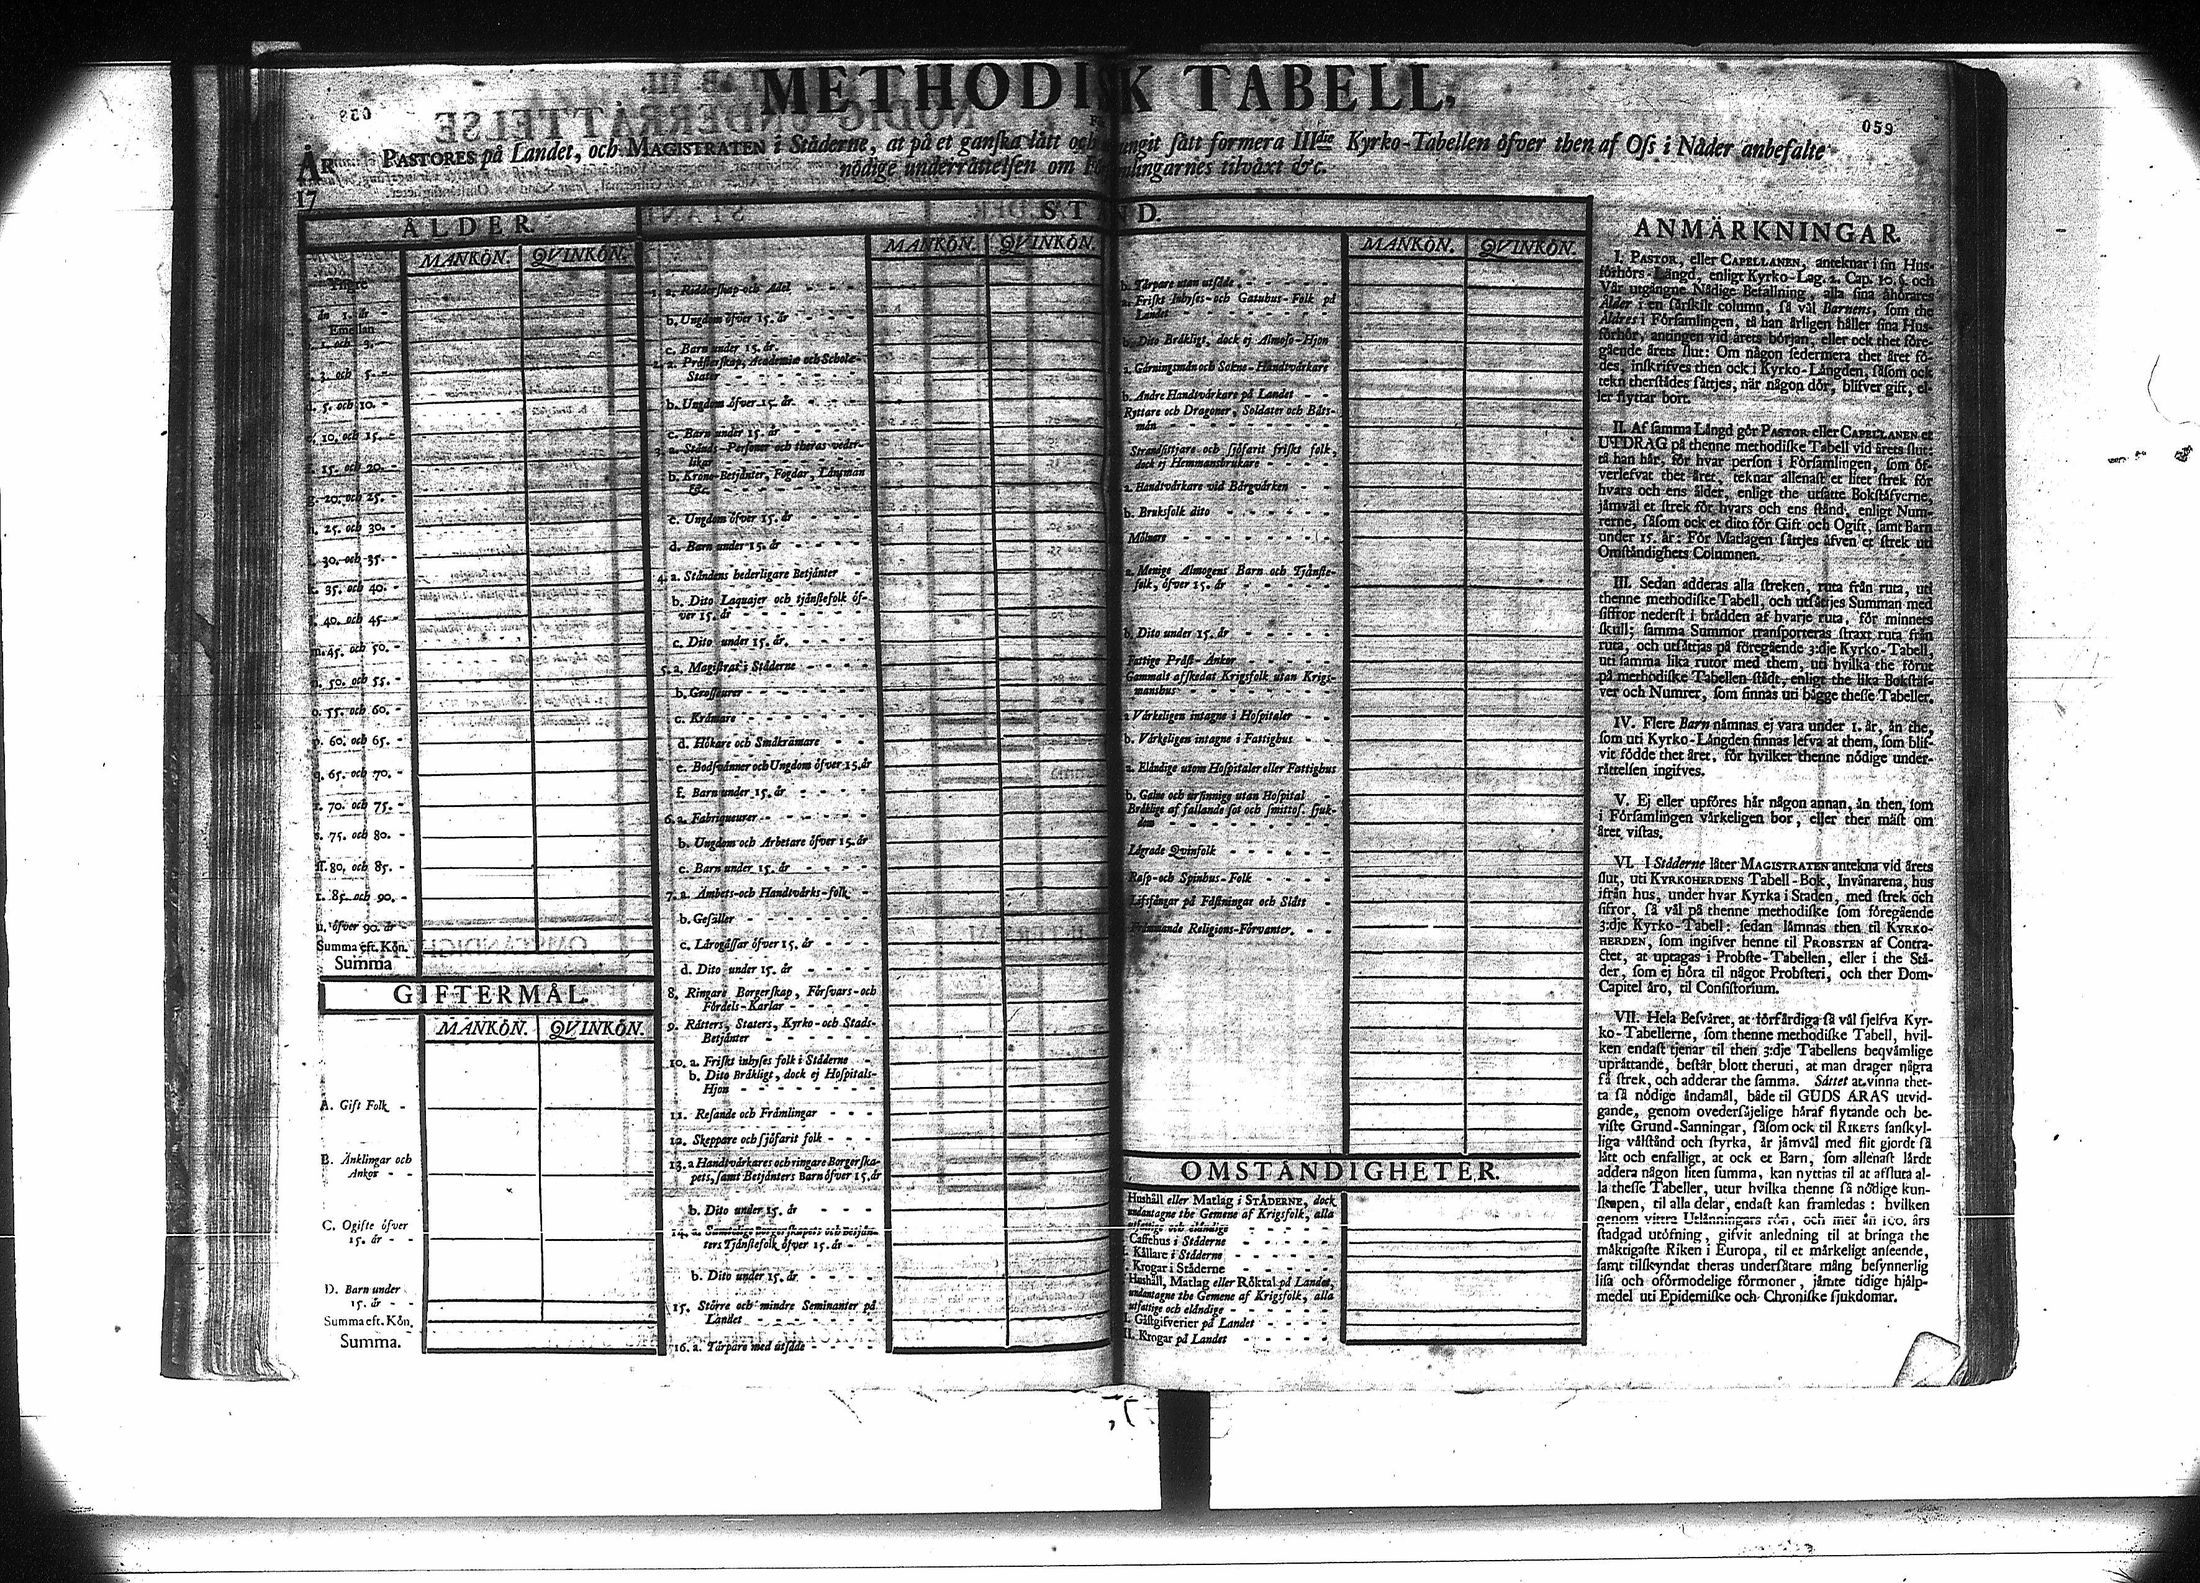 METHODISK TABELL,
058
059
PASTORES på Landet, och MAGISTRATEN i Städerne, at på et ganska lått och sått formera IIIdie Kyrko-Tabellen öfver then af Oss i Nåder anbefalte
nödige underråttelsen om tilvåxt &c.
ÅR
17
ÅLDER.
MANKÖN. QVINKÖN.
Yngre
ån 1. år -
Emellan
1. och 3. -
3. och 5. -
d. 5. och 10. -
e. 10. och 15. -
f. 15. och 20. -
g. 20. och 25. -
h. 25. och 30. -
i. 30. och 35. -
k. 35. och 40. -
l. 40. och 45. -
m. 45. och 50. -
n. 50. och 55. -
o. 55. och 60. -
p. 60. och 65. -
q. 65. och 70. -
r. 70. och 75. -
s. 75. och 80. -
ſſ. 80. och 85. -
t. 85. och 90. -
u. öfver 90. år -
Summa eft. Kön.
Summa
GIFTERMÅL.
MANKÖN. QVINKÖN.
A. Gift Folk -
B. Änklingar och
Änkor - -
C. Ogifte öfver
15. år - -
D. Barn under
15. år - -
Summa eft. Kön.
Summa.
STÅND.
MANKÖN. QVINKÖN.
1. a. Ridderſkap och Adel - -
b. Ungdom öfver 15. år - -
c. Barn under 15. år.
2. a. Pråſterſkap, Academiæ och Schole-
Stater - - - - -
b. Ungdom öfver 15. år - - -
c. Barn under 15. år - - -
3. a. Stånds-Perſoner och theras veder-
likar
b. Krono-Betjånter, Fogdar, Länsmän
&c. - - - - -
c. Ungdom öfver 15. år - - -
d. Barn under 15. år - - - -
4. a. Ståndens hederligare Betjånter -
b. Dito Laquajer och tjånſtefolk öf-
ver 15. år - - - - -
c. Dito under 15. år. - - - -
5. a. Magiſtrat i Ståderne - - - -
b. Groſſeurer - - - - - -
c. Kråmare - - - - - -
d. Hökare och Småkrämare - -
e. Bodſvånner och Ungdom öfver 15. år
f. Barn under 15. år - - - -
6. a. Fabriqueurer - - - - -
b. Ungdom och Arbetare öfver 15. år
c. Barn under 15. år - - - -
7. a. Åmbets- och Handtvårks-folk -
b. Gefåller - - - - - -
c. Lårogåſſar öfver 15. år - - -
d. Dito under 15. år - - - -
8. Ringare Borgerſkap, Förſvars- och
Fördels-Karlar - - - -
9. Råtters, Staters, Kyrko- och Stads-
Betjånter - - - - -
10. a. Friſkt inhyſes folk i Ståderne -
b. Dito Bråkligt, dock ej Hoſpitals-
Hjon - - - - - -
11. Reſande och Fråmlingar - - -
12. Skeppare och ſjöfarit folk - - -
13. a Handtvårkares och ringare Borgerſka-
pets, ſamt Betjånters Barn öfver 15. år
b. Dito under 15. år - - - -
14. a.
ters Tjånſtefolk öfver 15. år - -
b. Dito under 15. år. - - - -
15. Större och mindre Seminanter på
Landet - - - - - -
16. a. Tårpare med utſåde - - - -
MANKÖN. QVINKÖN.
b. Tårpare utan utſåde - - - - -
a. Friſkt Inhyſes- och Gatuhus-Folk på
Landet - - - - - -
b. Dito Bråkligt, dock ej Almoſo-Hjon
a. Gårningsmån och Sokne-Handtvårkare
b. Andre Handtvårkare på Landet - -
Ryttare och Dragoner, Soldater och Båts-
mån - - - - - - -
Strandſittjare och ſjöfarit friſkt folk,
dock ej Hemmansbrukare - - - -
a. Handtvårkare vid Bårgvårken - -
b. Bruksfolk dito - - - - -
Mölnare - - - - - - -
a. Menige Almogens Barn och Tjånſte-
folk, öfver 15. år - - - -
b. Dito under 15. år - - - - -
Fattige Pråſt-Ånkor - - - - -
Gammalt afſkedat Krigsfolk utan Krigs-
manshus - - - - - -
a Vårkeligen intagne i Hoſpitaler - -
b. Vårkeligen intagne i Fattighus - -
a. Elåndige utom Hoſpitaler eller Fattighus
b. Galne och urſinnige utan Hoſpital -
Bråklige af fallande ſot och ſmittoſ. ſjuk-
dom - - - - - - -
Lågrade Qvinfolk - - - - -
Raſp- och Spinhus-Folk - - - -
Lifsfångar på Fåſtningar och Slått -
Fråmmande Religions-Förvanter. - -
OMSTÅNDIGHETER.
Hushåll eller Matlag i STÅDERNE, dock
undantagne the Gemene af Krigsfolk, alla
utfattige och elåndige - - - -
Caffehus i Ståderne - - - -
Kållare i Ståderne - - - -
Krogar i Ståderne - - - -
Hushåll, Matlag eller Röktal på Landet,
undantagne the Gemene af Krigsfolk, alla
utfattige och elåndige - - - -
Gåſtgifverier på Landet - - - -
Krogar på Landet - - - -
ANMÄRKNINGAR.
I. PASTOR, eller CAPELLANEN, anteknar i ſin Hus-
förhörs-Långd, enligt Kyrko-Lag. 2. Cap. 10. §. och
Vår utgångne Nådige Befallning, alla ſina åhörares
Ålder i en ſårſkilt column, ſå vål Barnens, ſom the
Åldres i Förſamlingen, tå han årligen håller ſina Hus-
förhör, antingen vid årets början, eller ock thet före-
gående årets ſlut: Om någon ſedermera thet året fö-
des, inſkrifves then ock i Kyrko-Långden, ſåſom ock
tekn therſtådes ſåttjes, når någon dör, blifver gift, el-
ler flyttar bort.
II. Af ſamma Långd gör PASTOR eller CAPELLANEN et
UTDRAG på thenne methodiſke Tabell vid årets ſlut:
tå han hår, för hvar perſon i Förſamlingen, ſom öf-
verlefvat thet året, teknar allenaſt et litet ſtrek för
hvars och ens ålder, enligt the utſatte Bokſtåfverne,
jåmvål et ſtrek för hvars och ens ſtånd, enligt Num-
rerne, ſåſom ock et dito för Gift och Ogift, ſamt Barn
under 15. år: För Matlagen ſåttjes åfven et ſtrek uti
Omſtåndighets Columnen.
III. Sedan adderas alla ſtreken, ruta från ruta, uti
thenne methodiſke Tabell, och utſåttjes Summan med
ſiffror nederſt i brådden af hvarje ruta, för minnets
ſkull; ſamma Summor transporteras ſtraxt ruta från
ruta, och utſåttjas på föregående 3:dje Kyrko-Tabell,
uti ſamma lika rutor med them, uti hvilka the förut
på methodiſke Tabellen ſtådt, enligt the lika Bokſtåf-
ver och Numrer, ſom finnas uti bågge theſſe Tabeller.
IV. Flere Barn nåmnas ej vara under 1. år, ån the,
ſom uti Kyrko-Långden finnas lefva at them, ſom blif-
vit födde thet året, för hvilket thenne nödige under-
råttelſen ingifves.
V. Ej eller upföres hår någon annan, ån then, ſom
i Förſamlingen vårkeligen bor, eller ther måſt om
året viſtas.
VI. I Ståderne låter MAGISTRATEN antekna vid årets
ſlut, uti KYRKOHERDENS Tabell-Bok, Invånarena, hus
ifrån hus, under hvar Kyrka i Staden, med ſtrek och
ſifror, ſå vål på thenne methodiſke ſom föregående
3:dje Kyrko-Tabell: ſedan låmnas then til KYRKO-
HERDEN, ſom ingifver henne til PROBSTEN af Contra-
ctet, at uptagas i Probſte-Tabellen, eller i the Stå-
der, ſom ej höra til något Probſteri, och ther Dom-
Capitel åro, til Conſiſtorium.
VII. Hela Beſvåret, at förfårdiga ſå vål ſjelfva Kyr-
ko-Tabellerne, ſom thenne methodiſke Tabell, hvil-
ken endaſt tjenar til then 3:dje Tabellens beqvåmlige
upråttande, beſtår blott theruti, at man drager några
få ſtrek, och adderar the ſamma. Såttet at vinna thet-
ta ſå nödige åndamål, både til GUDS ÅRAS utvid-
gande, genom ovederſåjelige håraf flytande och be-
viſte Grund-Sanningar, ſåſom ock til RIKETS ſanſkyl-
liga vålſtånd och ſtyrka, år jåmvål med flit gjordt ſå
lått och enfalligt, at ock et Barn, ſom allenaſt lårdt
addera någon liten ſumma, kan nyttjas til at affluta al-
la theſſe Tabeller, utur hvilka thenne ſå nödige kun-
ſkapen, til alla delar, endaſt kan framledas: hvilken
genom vittra Utlånningars rön, och mer ån 100. års
ſtadgad utöfning, gifvit anledning til at bringa the
måktigaſte Riken i Europa, til et mårkeligt anſeende,
ſamt tilſkyndat theras underſåtare mång beſynnerlig
liſa och oförmodelige förmoner, jåmte tidige hjålp-
medel uti Epidemiſke och Chroniſke ſjukdomar.